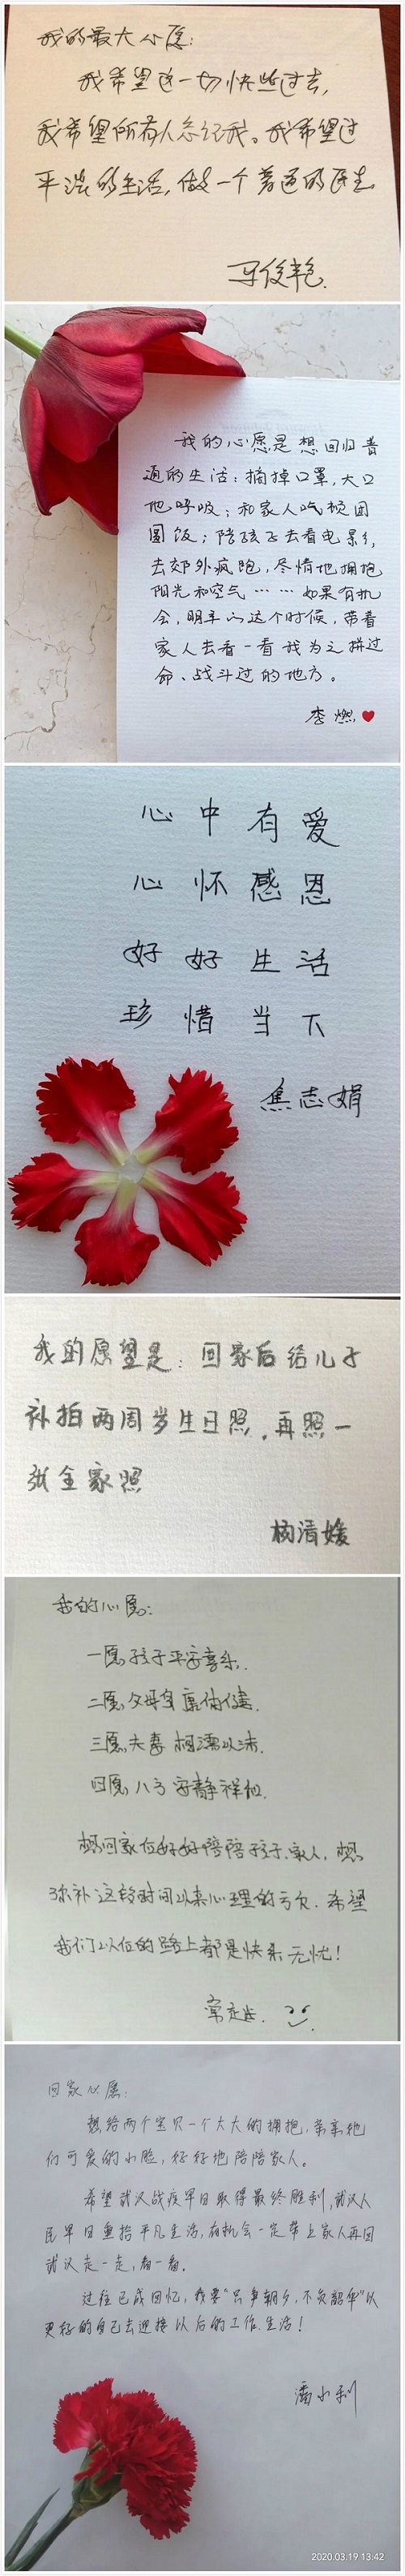 我的最大心愿:
我希望这一切快些过去,
我希望所有人忘记我。我希望过
平淡的生活,做一个普通的医生。
我的心愿是想回归普
通的生活:摘掉口罩,大口
地呼吸;和家人吃顿团
圆饭;陪孩子去看电影,
去郊外疯跑,尽情地拥抱
阳光和空气……如果有机
会,明年的这个时候,带着
家人去看一看我为之拼过
命、战斗过的地方。
李燃
心中有爱
心怀感恩
好好生活
珍惜当下
焦志娟
我的愿望是:回家后给儿子
补拍两周岁生日照,再照一
张全家照
杨清媛
我的心愿:
一愿,孩子平安喜乐.
二愿,父母身康体健.
三愿,夫妻相濡以沫.
四愿,八方安静祥和.
想回家后好好陪陪孩子、家人,想
弥补这段时间以来心理的亏欠.希望
我们以后的路上都是快乐无忧!
回家心愿:
想给两个宝贝一个大大的拥抱,亲亲他
们可爱的小脸,好好地陪陪家人。
希望武汉战疫早日取得最终胜利,武汉人
民早日重拾平凡生活,有机会一定带上家人再回
武汉走一走,看一看。
过往已成回忆,我要"只争朝夕,不负韶华"以
更好的自己去迎接以后的工作.生活!
潘小利
2020.03.19 13:42